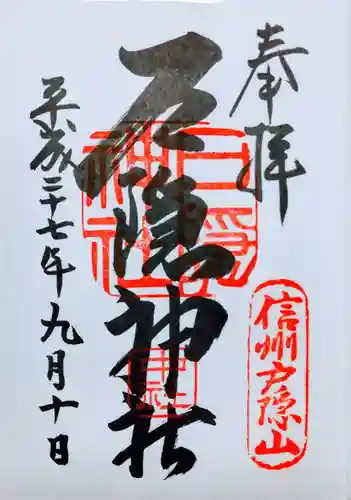 奉拝
戸隠神社
平成二十七年九月十日
信州戸隠山